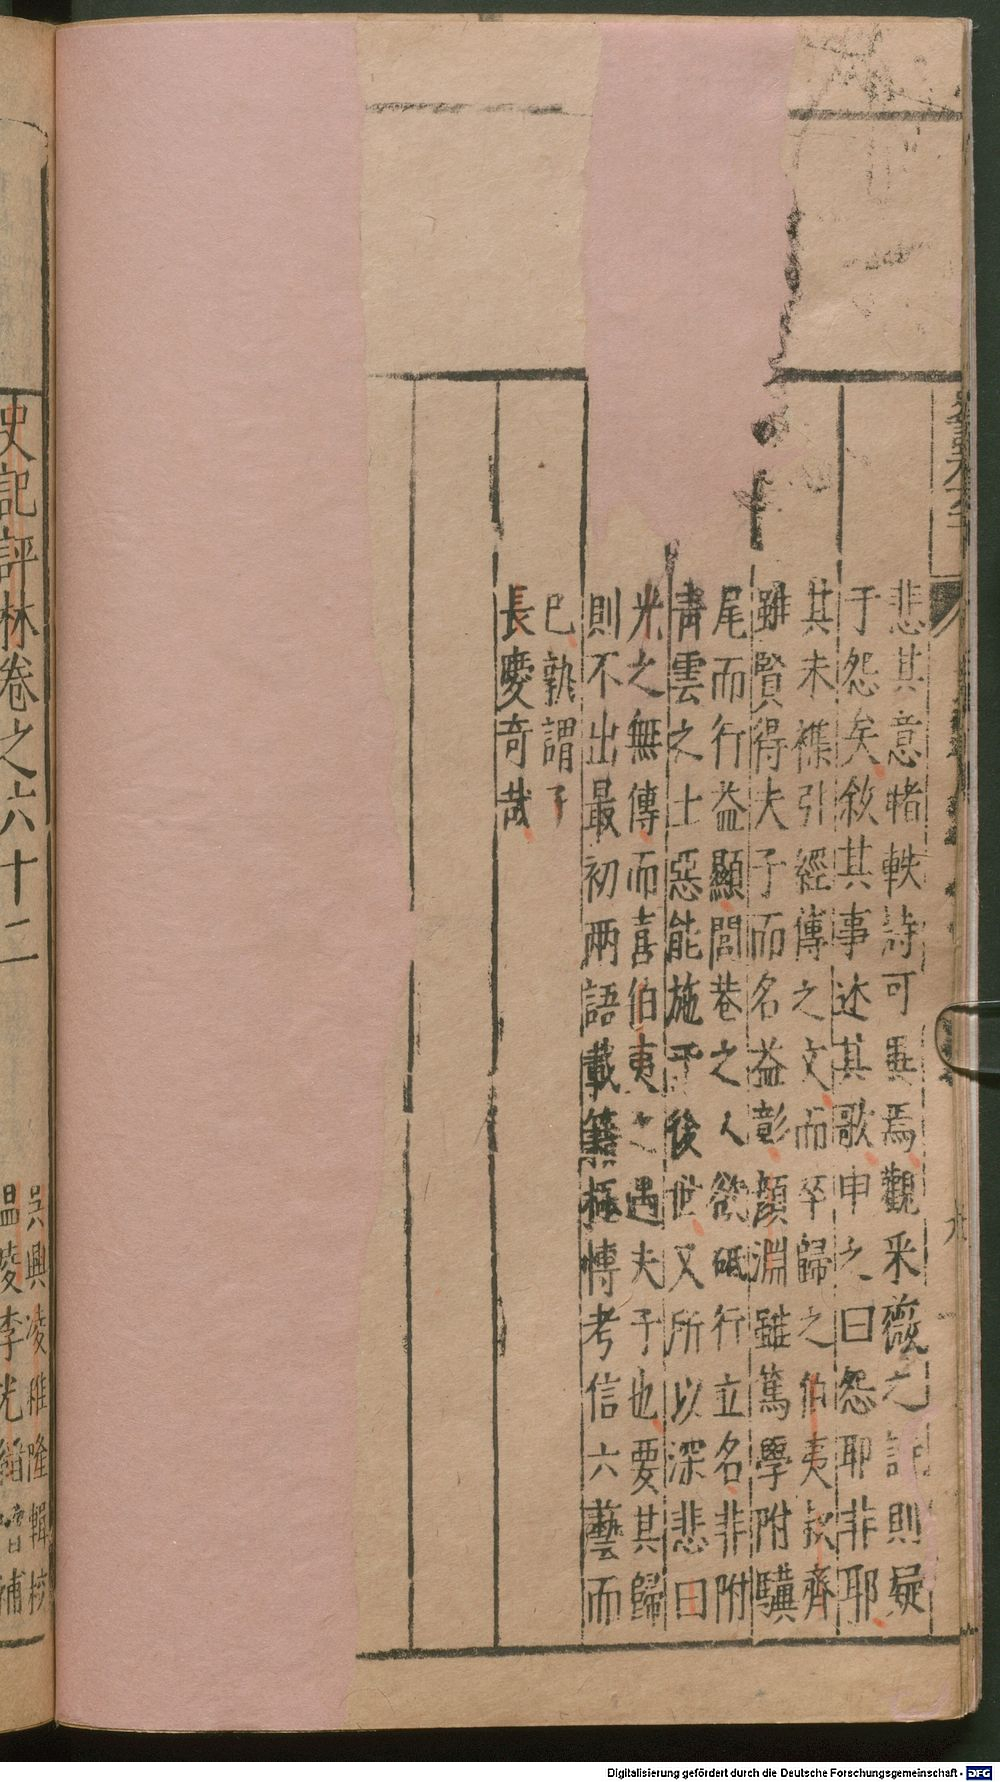 悲其意睹軼詩可異焉觀采薇之詩則疑
于怨矣敘其事述其歌申之曰怨耶非耶
其未襍引經傳之文而卒歸之伯夷叔齊
雖賢得夫子而名益彰顏淵雖篤學附驥
尾而行益顯閭巷之人欲砥行立名非附
青雲之士惡能施于後世又所以深悲曰
光之無傳而喜伯夷之遇夫子也要其歸
則不出最初兩語載籍極愽考信六藝而
已孰謂子
長慶奇哉
史記評林卷之六十二
吳興凌稚隆輯校
溫陵李光縉增補
Digitalisierung gefördert durch die Deutsche Forschungsgemeinschaft - DFG